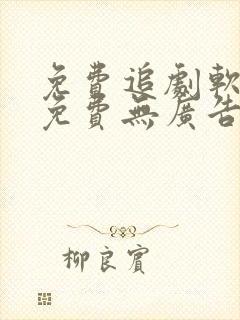 免費追劇軟
免費無廣告
柳良賓